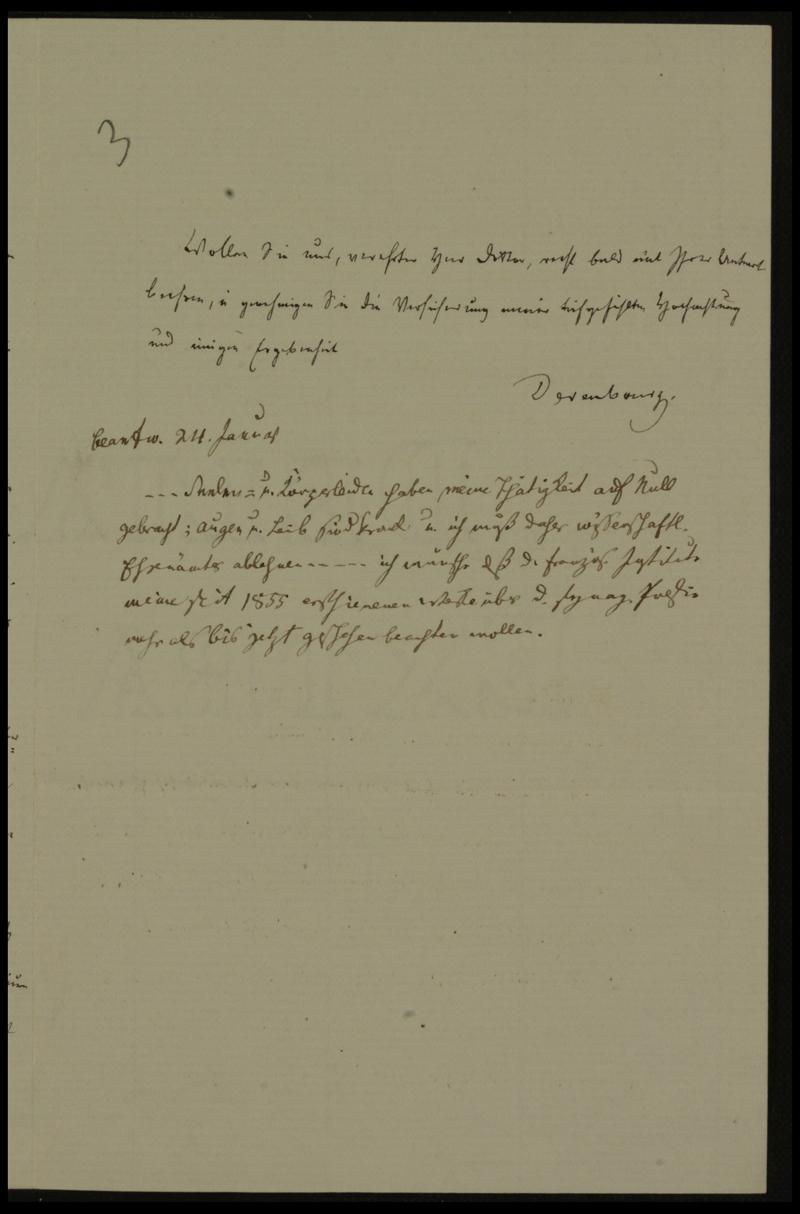 3
Wollen Sie uns, verehrter Herr Doktor, recht bald mit Ihrer Antwort
beehren, u genehmigen Sie die Versicherung meiner tiefgefühlten Hochachtung
und innigen Ergebenheit
Derenbourg.
beantw. 24. Januar
--- Seelen= u. Körperleiden haben meine Thätigkeit auf Null
gebracht; Augen u. Leib sind krank u. ich muß daher wissenschaftl.
Ehrenämter ablehnen ----- ich wünsche daß d. französ. Institut
meine seit 1855 erschienenen Werke über d. synag. Poesie
mehr als bis jetzt geschehen beachten wollen.